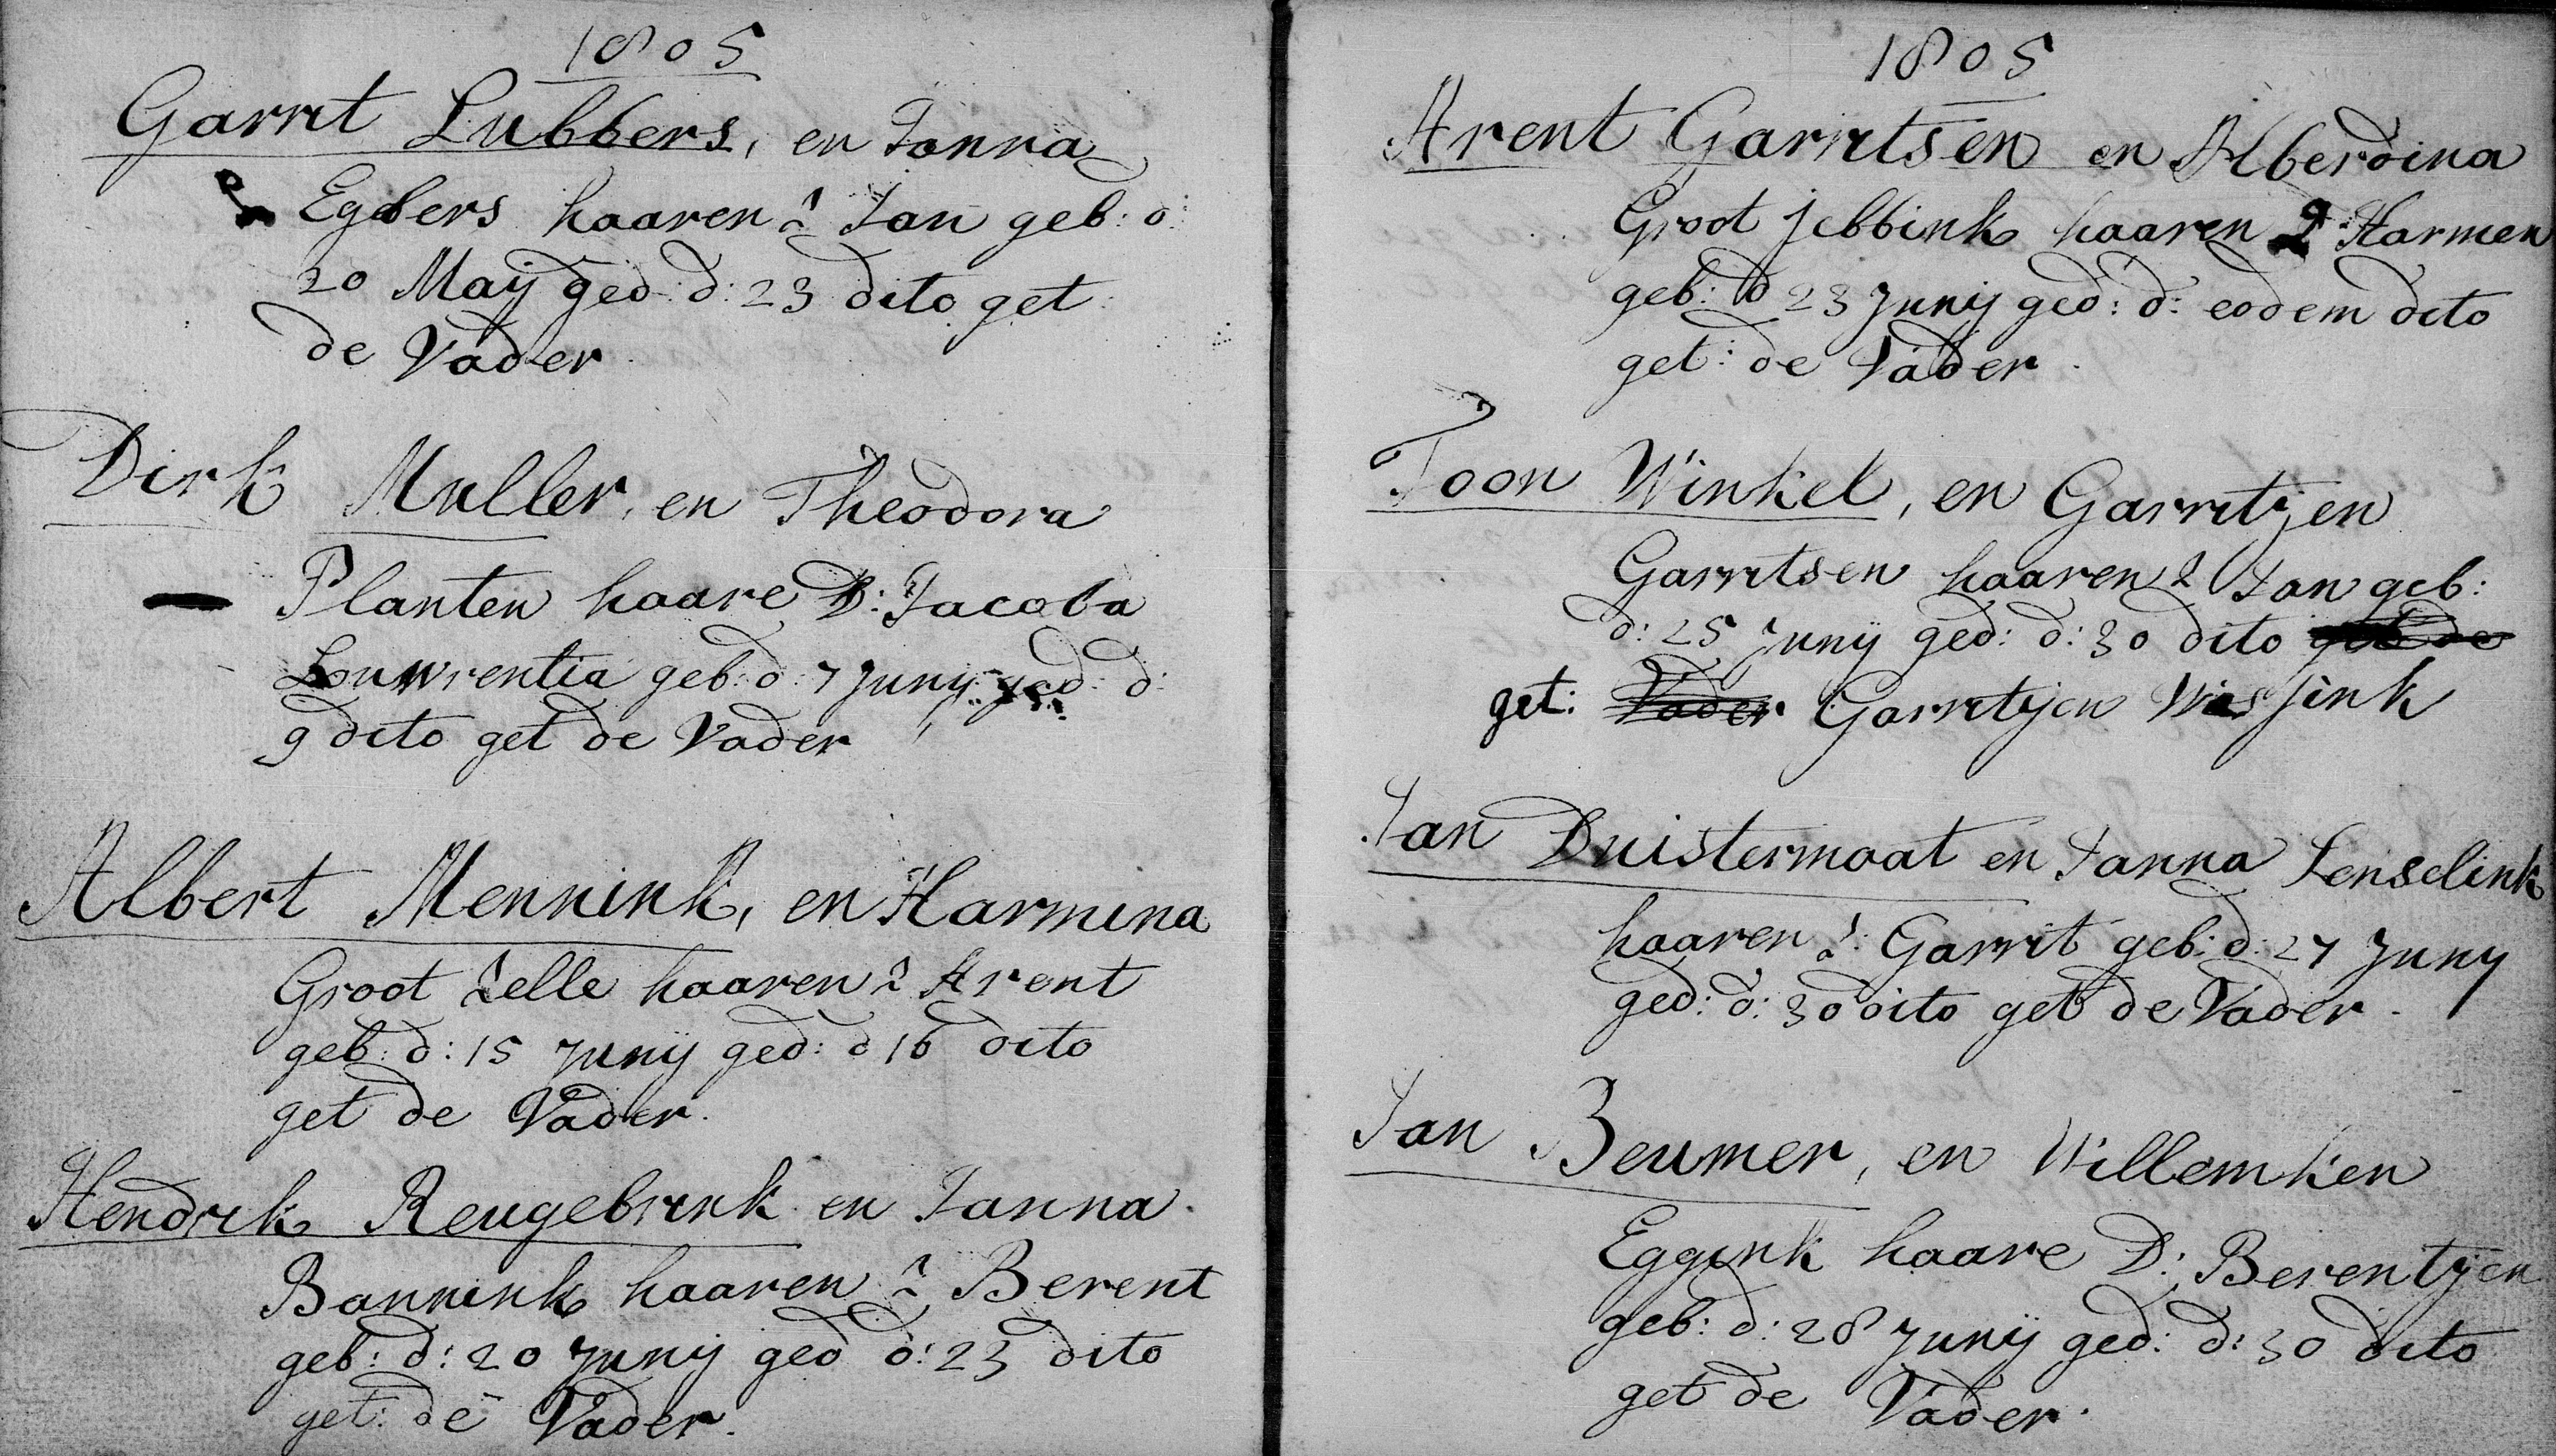 1805
Garrit Lubbers, en Janna
Egbers haaren Z Jan geb: d:
20 Maij ged: d: 23 dito get:
de Vader
Dirk Muller, en Theodora
Planten haare D: Jacoba
Louwrentia geb: d: 7 Junij ged: d:
9 dito get de Vader
Albert Mennink, en Harmina
Groot Zelle haaren Z Arent
geb: d: 15 Junij ged: d 16 dito
get de Vader.
Hendrik Reugebrink en Janna
Bannink haaren Z Berent
geb: d: 20 Junij ged d: 23 dito
get: de Vader.
1805
Arent Garritsen en Alberdina
Groot Jebbink haaren Z Harmen
geb: d 23 Junij ged: d: eodem dito
get: de Vader.
Toon Winkel, en Garritjen
Garritsen haaren Z Jan geb:
d: 25 Junij ged: d: 30 dito get de
get: Vader Garritjen Wissink
Jan Duistermaat en Janna Lenselink
haaren Z: Garrit geb: d: 27 Juny
ged: d: 30 dito get de Vader.
Jan Beumer, en Willemken
Eggink haare D: Berentjen
geb: d: 28 Junij ged: d: 30 dito
get de Vader.